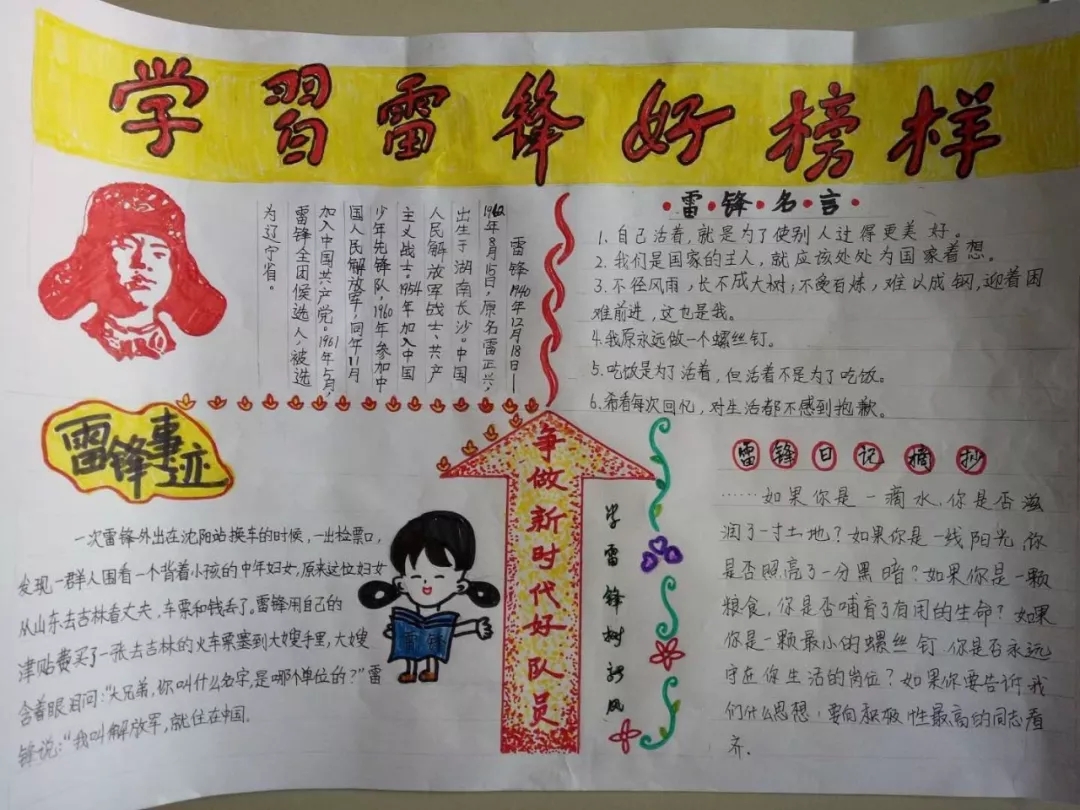 学習雷锋好榜样
雷锋1940年12月18日—
1962年8月15日,原名雷正兴,
出生于湖南长沙。中国
人民解放军战士、共产
主义战士。1954年加入中国
少年先锋队,1960年参加中
国人民解放军,同年11月
加入中国共产党。1961年5月,
雷锋全团候选人,被选
为辽宁省。
雷锋名言
1.自己活着,就是为了使别人过得更美好。
2.我们是国家的主人,就应该处处为国家着想。
3.不经风雨,长不成大树;不受百炼,难以成钢,迎着困
难前进,这也是我。
4.我原永远做一个螺丝钉。
5.吃饭是为了活着,但活着不是为了吃饭。
6.希看每次回忆,对生活都不感到抱歉。
雷锋事迹
一次雷锋外出在沈阳站换车的时候,一出检票口,
发现一群人围看一个背着小孩的中年妇女,原来这位妇女
从山东去吉林看丈夫,车票和钱丢了。雷锋用自己的
津贴费买了一张去吉林的火车票塞到大嫂手里,大嫂
含着眼泪问:“大兄弟,你叫什么名字,是哪个单位的?”雷
锋说:“我叫解放军,就住在中国。
雷锋
争做新时代好队员
学雷锋树新风
雷锋日记摘抄
……如果你是一滴水,你是否滋
润了一寸土地?如果你是一线阳光,你
是否照亮了一分黑暗?如果你是一颗
粮食,你是否哺育了有用的生命?如果
你是一颗最小的螺丝钉 你是否永远
守在你生活的岗位?如果你要告诉我
们什么思想,要向积极性最高的同志看
齐.